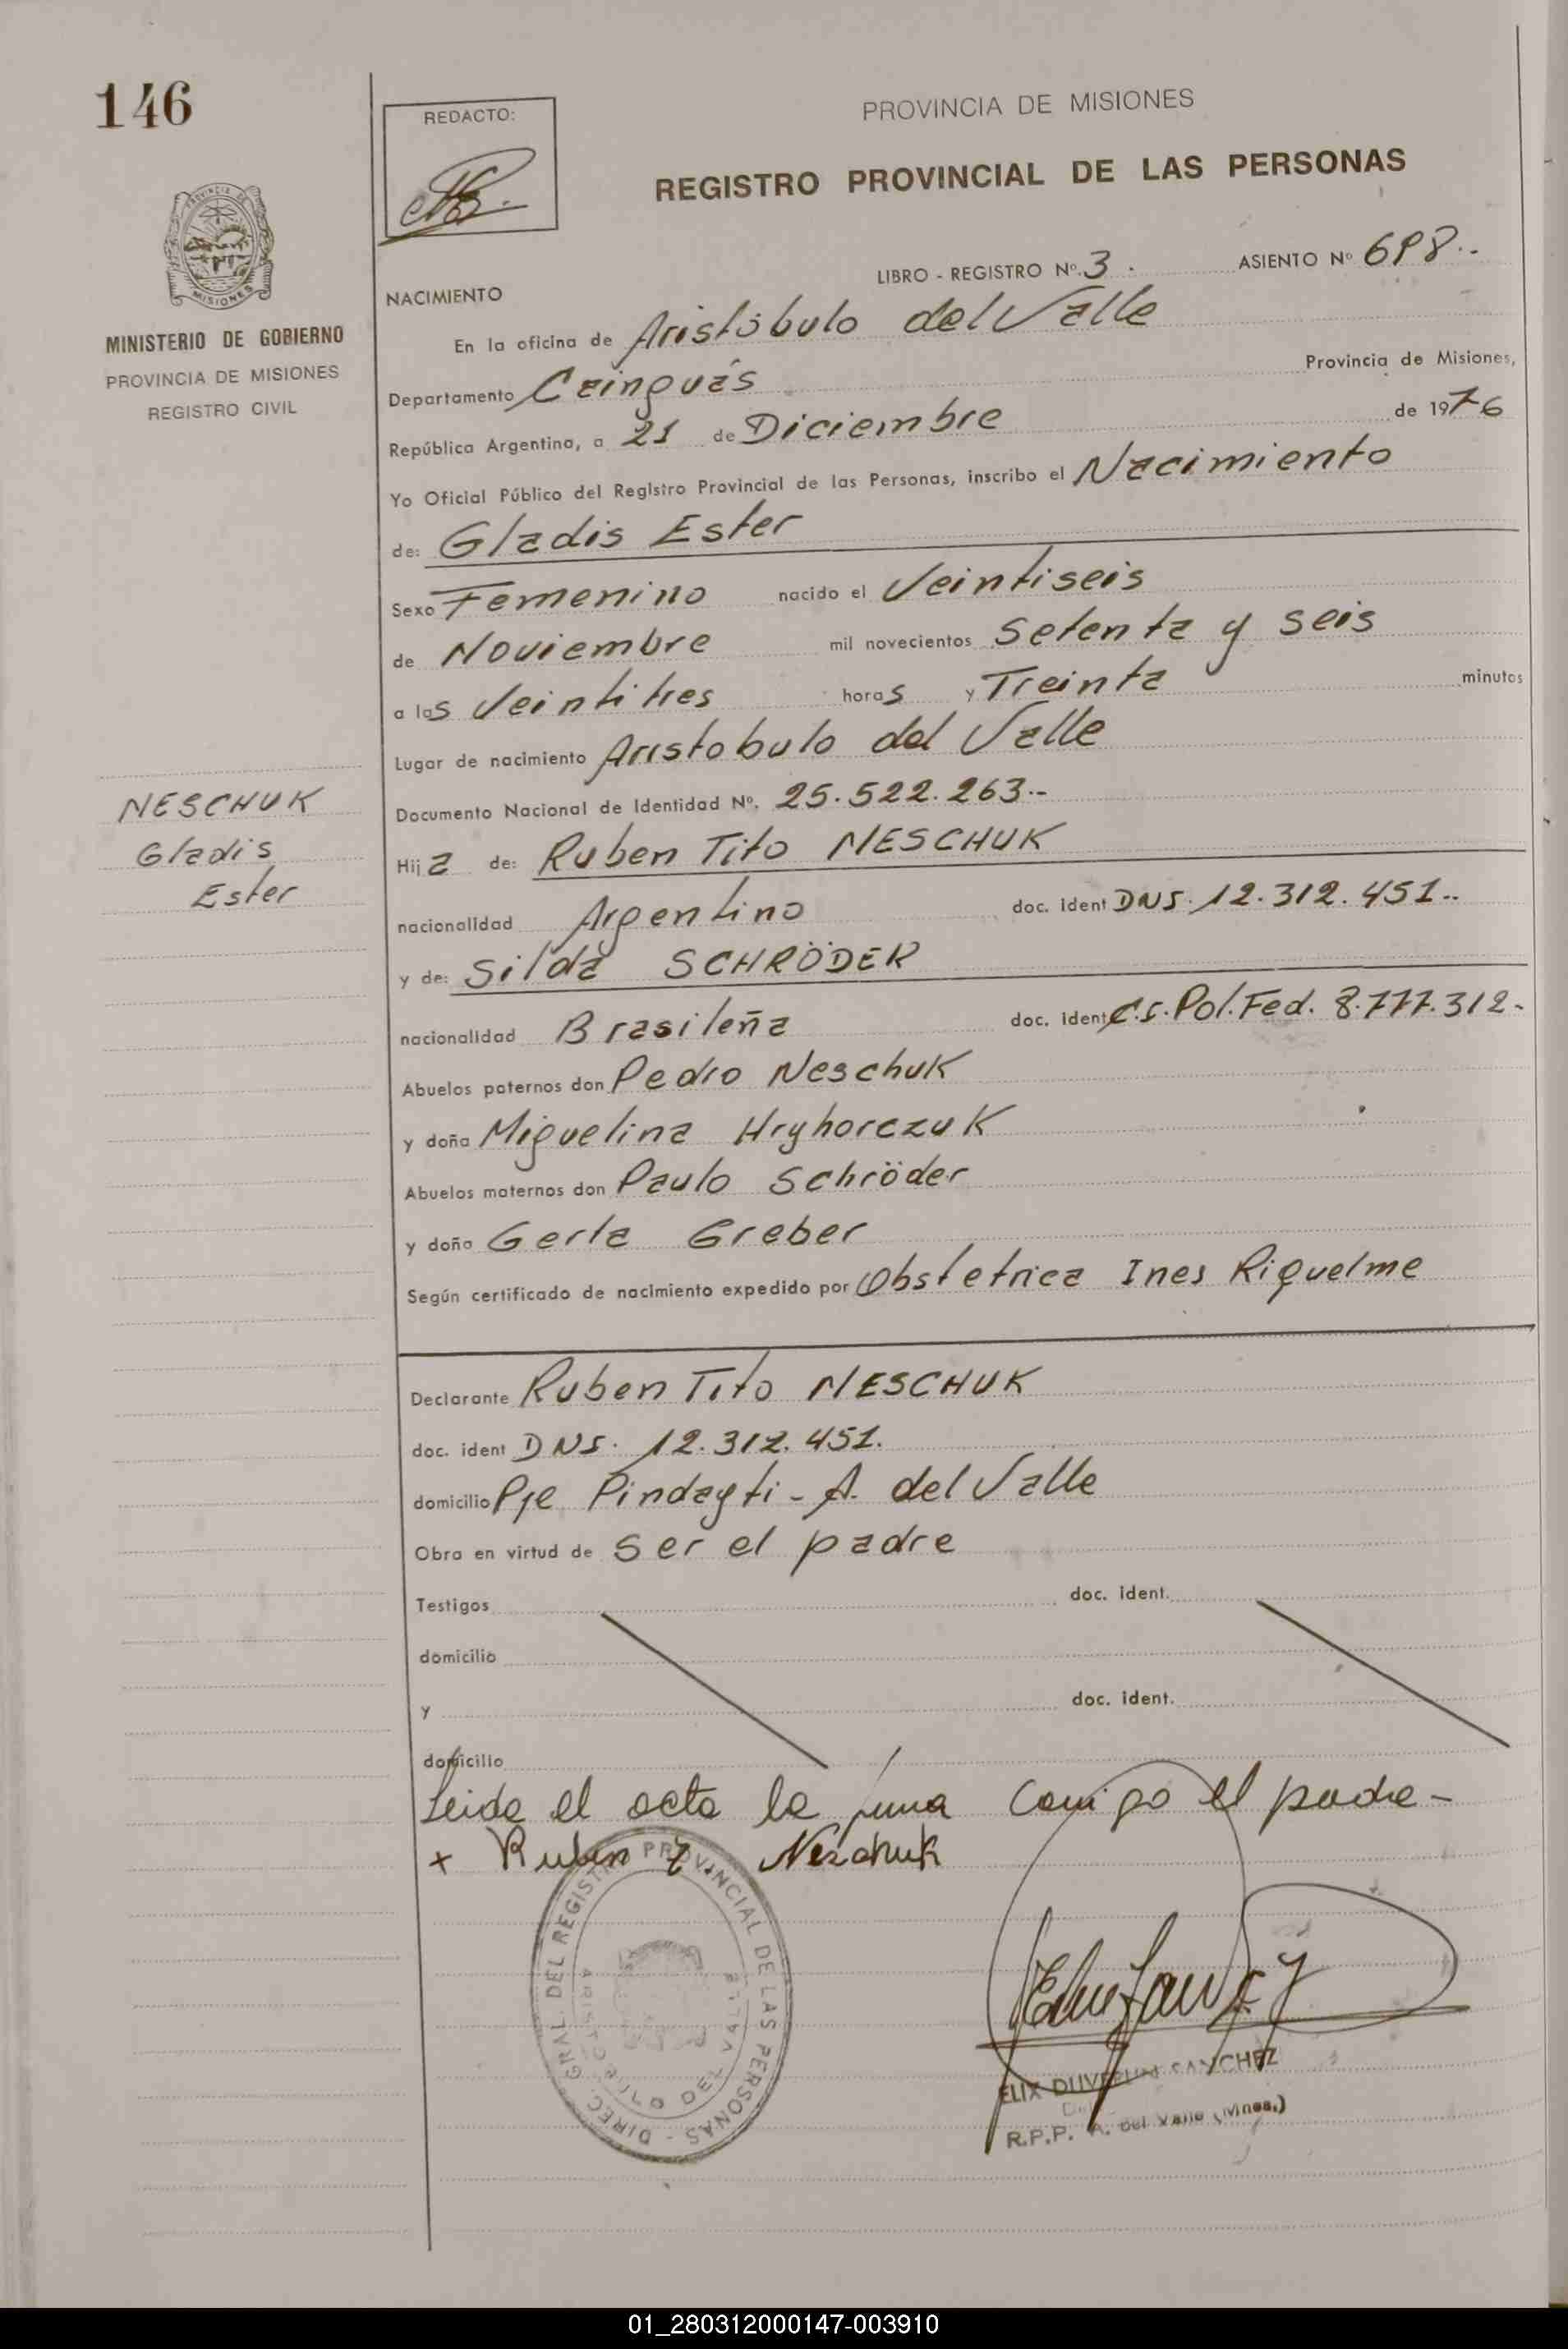 146
REDACTO:
PROVINCIA DE MISIONES
REGISTRO PROVINCIAL DE LAS PERSONAS
PROVINCIA DE
MISIONES
MINISTERIO DE GOBIERNO
PROVINCIA DE MISIONES
REGISTRO CIVIL
LIBRO - REGISTRO Nº. 3. ASIENTO Nº 698..
NACIMIENTO
En la oficina de Aristóbulo del Valle
Departamento Cainguás Provincia de Misiones,
República Argentina, a 21 de Diciembre de 1976
Yo Oficial Público del Registro Provincial de las Personas, inscribo el Nacimiento
de: Gladis Ester
Sexo Femenino nacido el Veintiseis
de Noviembre mil novecientos Setenta y seis
a las Veintitres horas y Treinta minutos
Lugar de nacimiento Aristobulo del Valle
Documento Nacional de Identidad Nº. 25.522.263.-
NESCHUK
Gladis
Ester
Hija de: Ruben Tito NESCHUK
nacionalidad Argentino doc. ident DNI. 12.312.451..
y de: Silda SCHRÖDER
nacionalidad Brasileña doc. ident C.I. Pol. Fed. 8.777.312-
Abuelos paternos don Pedro Neschuk
y doña Miguelina Hryhorczuk
Abuelos maternos don Paulo Schröder
y doña Gerta Greber
Según certificado de nacimiento expedido por Obstetrica Ines Riquelme
Declarante Ruben Tito NESCHUK
doc. ident DNI. 12.312.451.
domicilio Pje Pindayti - A. del Valle
Obra en virtud de ser el padre
Testigos doc. ident.
domicilio
y doc. ident.
domicilio
Leida el acta la firma conmigo el padre -
+ Ruben T. Neschuk
DIREC. GRAL. DEL REGISTRO PROVINCIAL DE LAS PERSONAS -
ARISTOBULO DEL VALLE
SANCHEZ
R.P.P. A. del Valle (Mnes.)
01_280312000147-003910